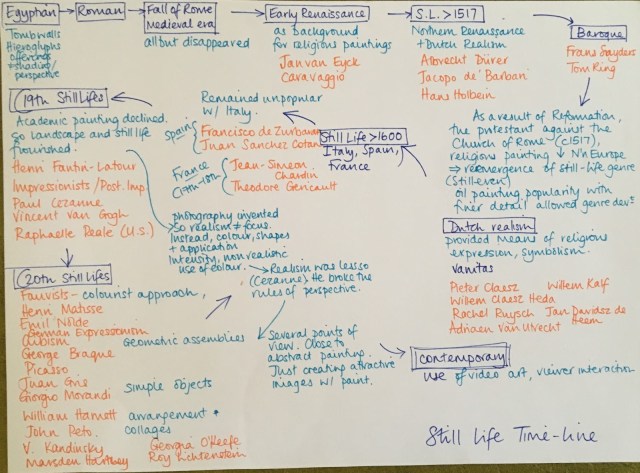 Egyptian
Roman
Fall of Rome
Medieval era
Early Renaissance
S.L. >1517
Baroque
Tombwalls
Hieroglyphs
offerings
+ shading/
perspective
all but disappeared
as background
for religious paintings
Jan van Eyck
Caravaggio
Northern Renaissance
+ Dutch Realism
Albrecht Dürer
Jacopo de' Barbari
Hans Holbein
Frans Snyders
Tom Ring
As a result of Reformation,
the protestant against the
Church of Rome (c1517),
religious painting ↓ N'n Europe
⇒ reemergence of still-life genre
(Stilleven)
oil painting popularity with
finer detail allowed genre devt
Dutch realism
provided means of religious
expression, symbolism.
vanitas
Pieter Claesz Willem Kalf
Willem Claesz Heda
Rachel Ruysch Jan Davidsz de
Heem
Adriaen van Utrecht
Still Life >1600
Italy, Spain,
France
Remained unpopular
w/ Italy.
Spain
Francisco de Zurbaran
Juan Sanchez Cotan
France
(17th-18th)
Jean-Simeon
Chardin
Theodore Gericault
19th Still Lifes
Academic painting declined.
So landscape and still life
flourished.
Henri Fantin-Latour
Impressionists/Post. Imp.
Paul Cezanne
Vincent van Gogh
Raphaelle Peale (U.S.)
photography invented
So realism ≠ focus.
Instead, colour, shapes
+ application
Intensity, non realistic
use of colour.
Realism was less so
(Cezanne) He broke the
rules of perspective.
Several points of
view. Close to
abstract painting.
Just creating attractive
images w/ paint.
20th Still Lifes
Fauvists - colourist approach,
Henri Matisse
Emil Nolde
German Expressionism
Cubism Geometric assemblies
George Braque
Picasso
Juan Gris
Giorgio Morandi simple objects
William Harnett arrangement +
John Peto. collages
V. Kandinsky Georgia O'Keefe
Marsden Hartley Roy Lichtenstein
Contemporary
use of video art, viewer interaction
Still Life Time-line